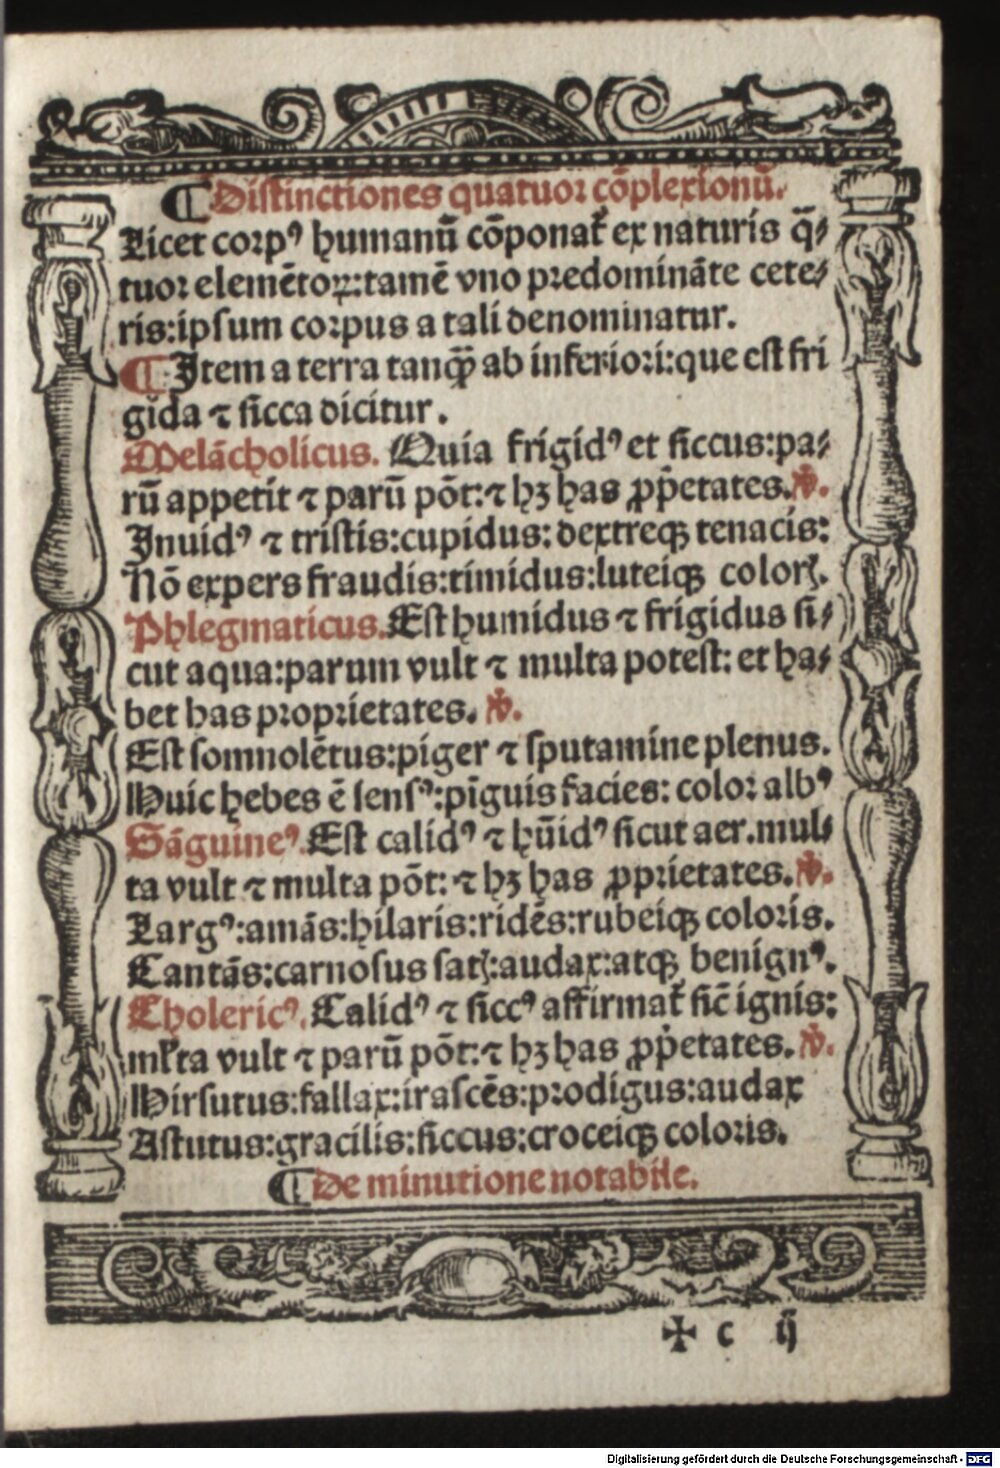 ¶ Distinctiones quatuor cōplexionū.
Licet corpꝰ humanū cōponat᷑ ex naturis q̄⸗
tuor elemētoꝝ:tamē vno predomināte cete⸗
ris:ipsum corpus a tali denominatur.
¶ Item a terra tanꝙ̄ ab inferiori:que est fri
gida ⁊ sicca dicitur.
Melācholicus. Quia frigidꝰ et siccus:pa⸗
rū appetit ⁊ parū pōt:⁊ hꝫ has ꝓṗetates. ℣.
Inuidꝰ ⁊ tristis:cupidus:dextreqꝫ tenacis:
Nō expers fraudis:timidus:luteiqꝫ colorꝭ.
Phlegmaticus. Est humidus ⁊ frigidus si⸗
cut aqua:parum vult ⁊ multa potest: et ha⸗
bet has proprietates. ℣.
Est somnolētus:piger ⁊ sputamine plenus.
Huic hebes ē sensꝰ:pīguis facies: color albꝰ
Sāguineꝰ. Est calidꝰ ⁊ hūidꝰ sicut aer.mul⸗
ta vult ⁊ multa pōt: ⁊ hꝫ has ꝓprietates. ℣.
Largꝰ:amās:hilaris:ridēs:rubeiqꝫ coloris.
Cantās:carnosus satꝭ:audax:atqꝫ benignꝰ.
Cholericꝰ. Calidꝰ ⁊ siccꝰ affirmat᷑ sic̄ ignis:
ml̕ta vult ⁊ parū pōt:⁊ hꝫ has ꝓṗetates. ℣.
Hirsutus:fallax:irascēs:prodigus:audax
Astutus:gracilis:siccus:croceiqꝫ coloris.
¶ De minutione notabile.
✠ c ij
Digitalisierung gefördert durch die Deutsche Forschungsgemeinschaft - DFG